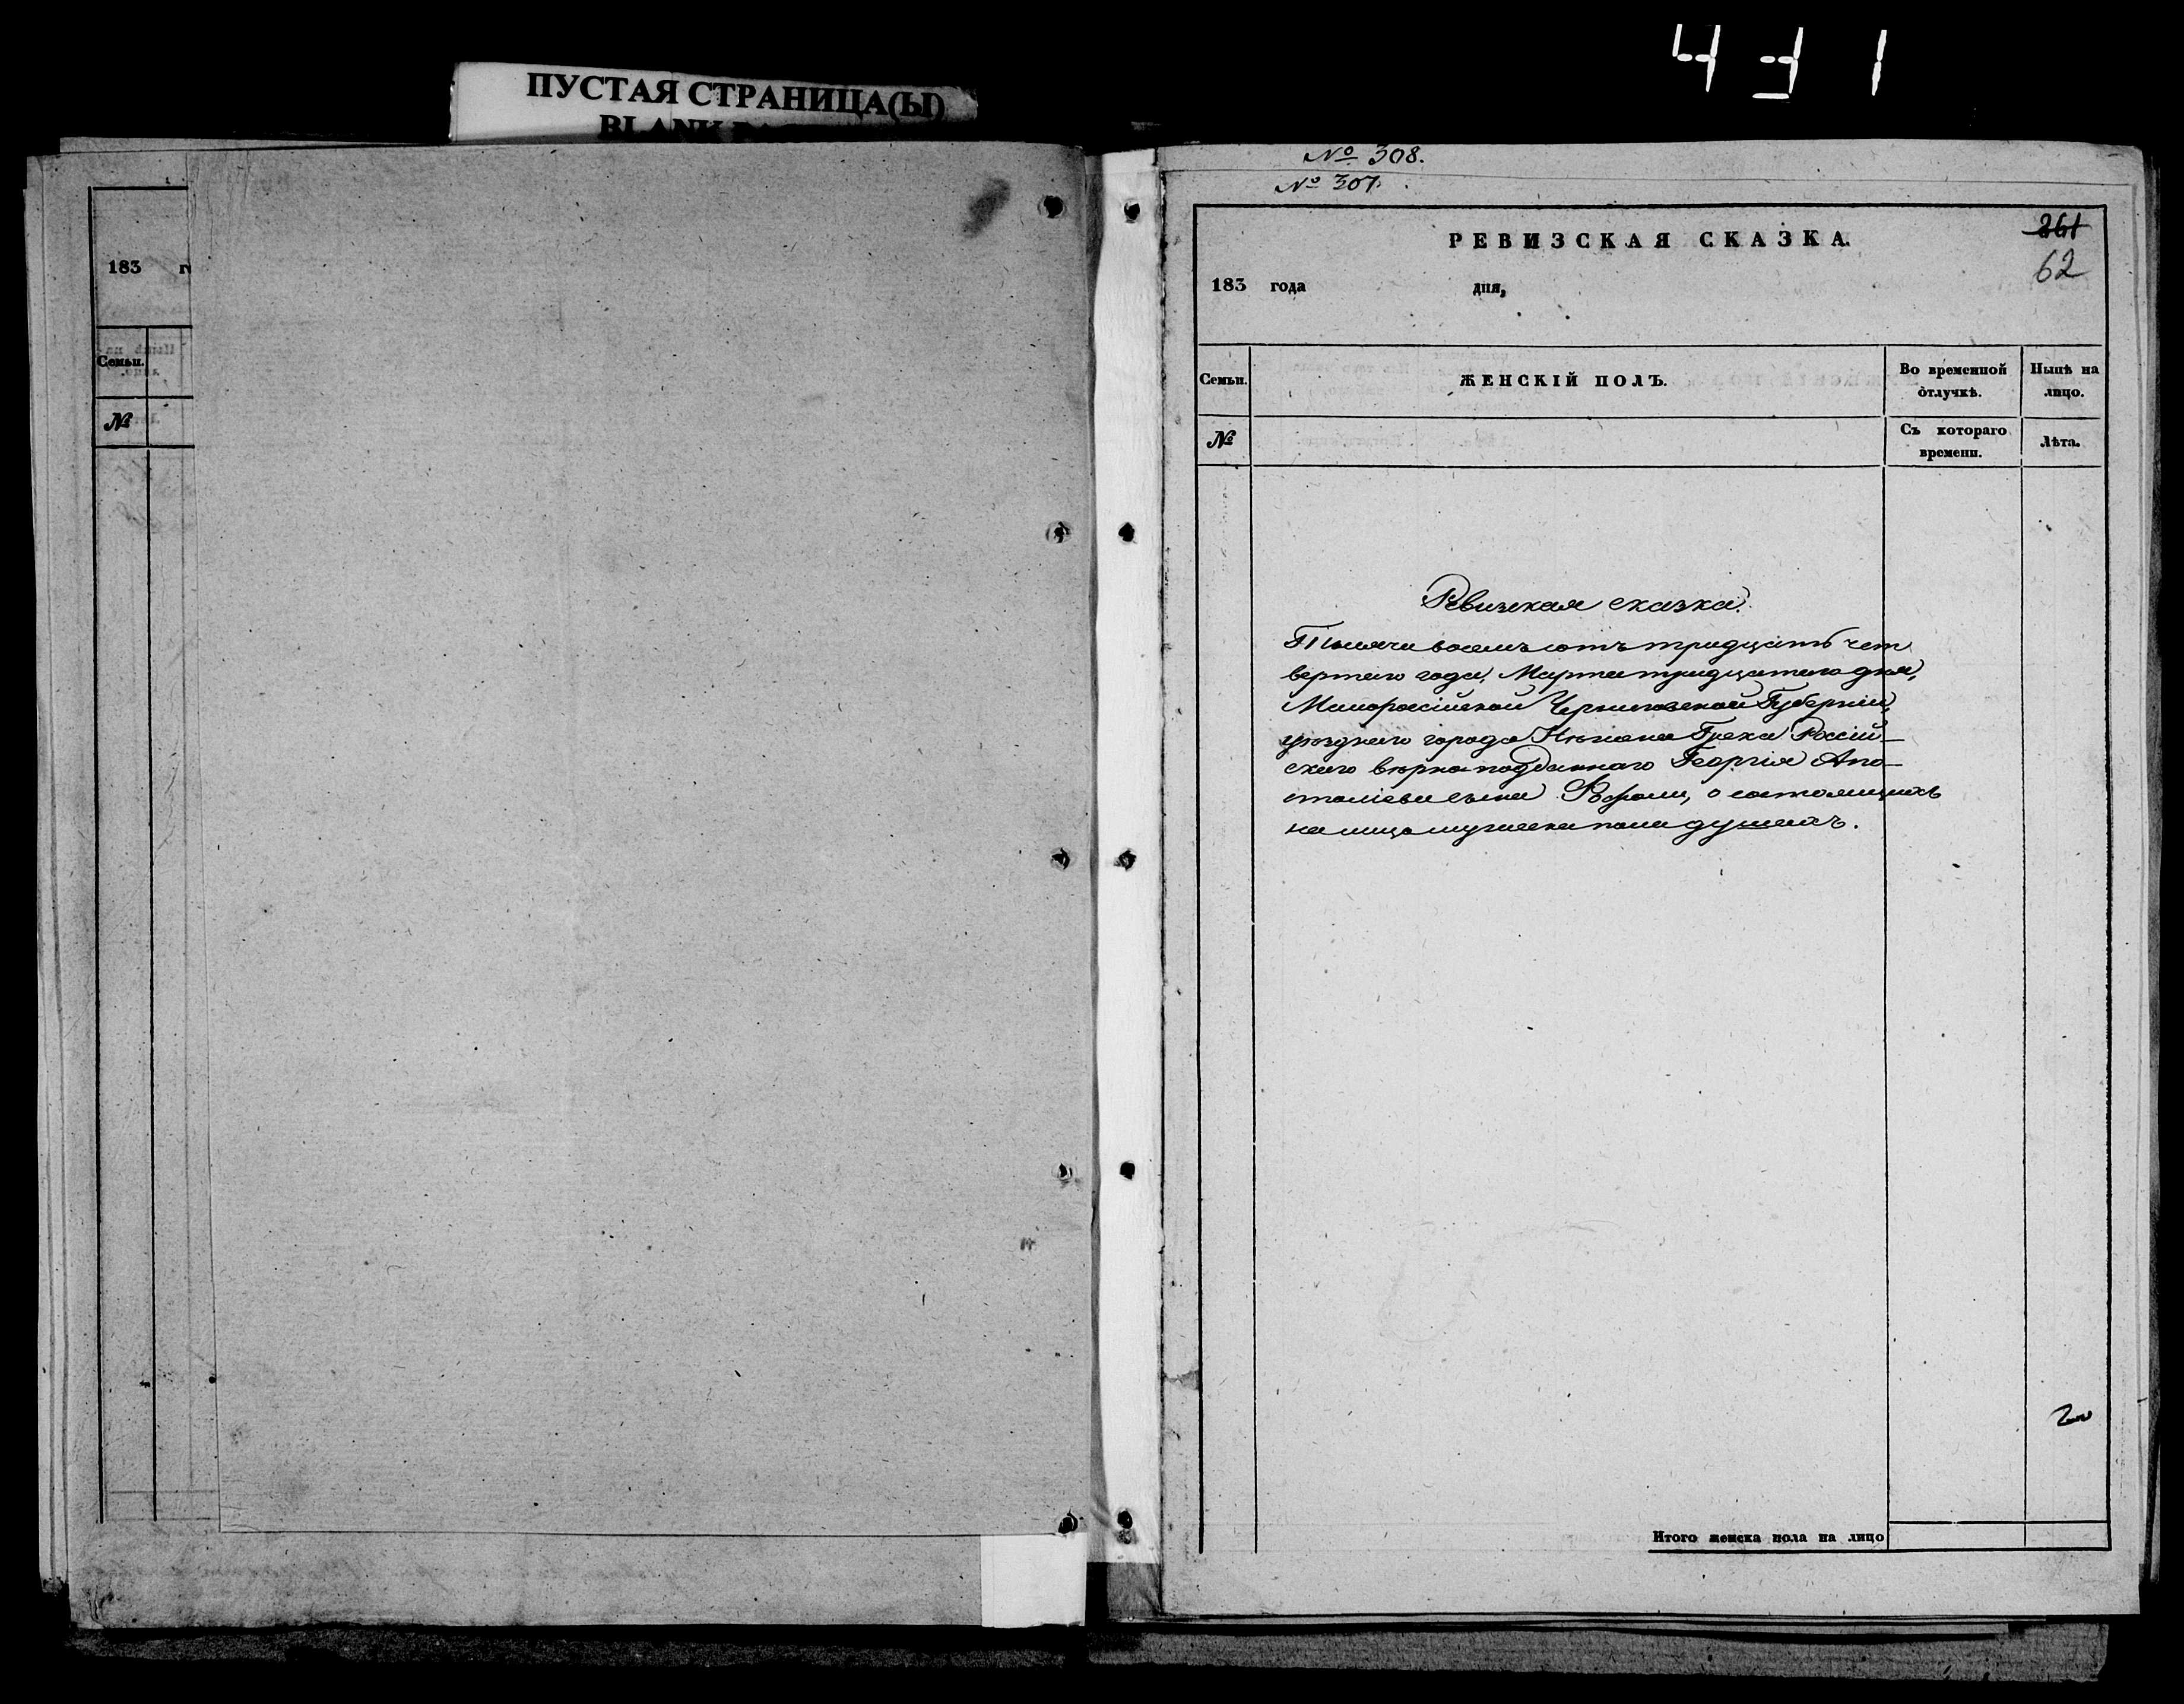 431
ПУСТАЯ СТРАНИЦА(Ы)
BLANK
183 г
Семьи.
№
№ 308.
№ 307.
РЕВИЗСКАЯ СКАЗКА.
261
62
183 года дня,
Семьи. ЖЕНСКІЙ ПОЛЪ. Во временной отлучкѣ. Нынѣ на лицо.
№ Съ котораго времени. Лѣта.
Ревизская сказка.
Тысяча восемъ сотъ тридцать чет
вертаго года, Марта тридцатого дня,
Малоросійской Черниговской Губерніи,
уѣзднаго города Нѣжина Грека Россій-
скаго вѣрноподданнаго Георгія Апо-
століева сына, о состоящихъ
на лицо мужеска пола душахъ.
Итого женска пола на лицо